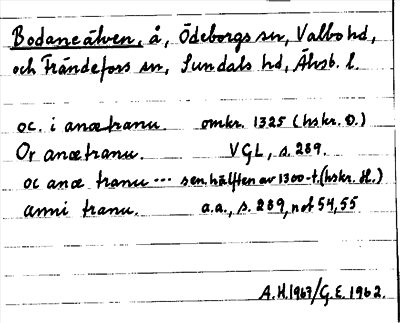 Bodaneälven, å, Ödeborgs sn, Valbo hd,
och Frändefors sn, Sundals hd, Älvsb. l.
oc. i anœ franu. omkr. 1325 (hskr. D.)
Or anœ franu. VGL, s. 289.
oc anœ franu --- sen. hälften av 1300-t. (hskr. H.)
anni franu. a.a., s. 289, not 54, 55
A.H. 1967/G.E. 1962.